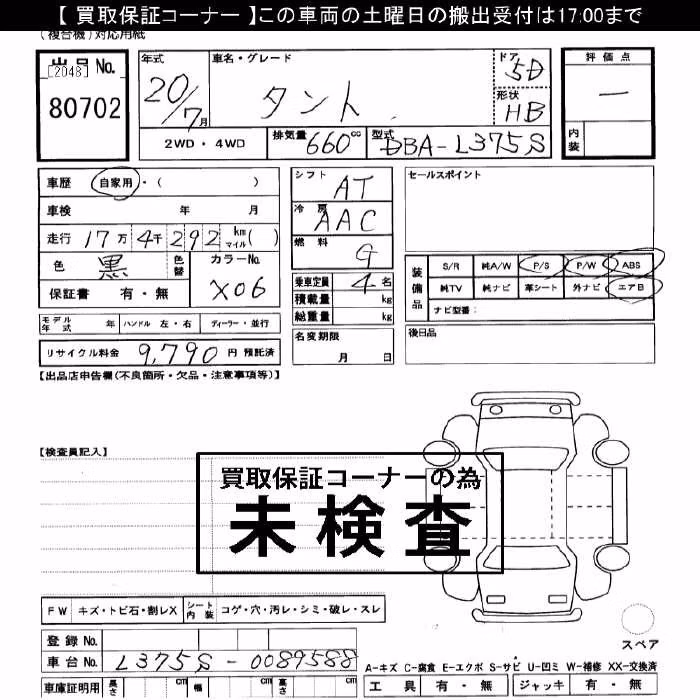 【 買取保証コーナー 】この車両の土曜日の搬出受付は17:00まで
(複合機)対応用紙
出品No. [2048] 80702
年式 20/7月
車名・グレード タント
ドア 5D
形状 HB
2WD・4WD 排気量 660cc 型式 DBA-L375S
評価点 一
内装
車歴 自家用・( )
車検 年 月
走行 17万4千292 km マイル( )
色 黒 色替 カラーNo. X06
保証書 有・無
モデル年式 年 ハンドル 左・右 ディーラー・並行
リサイクル料金 9,790 円 預託済
シフト AT
冷房 AAC
燃料 G
乗車定員 4 名
積載量 kg
総重量 kg
名変期限 月 日
セールスポイント
装備品 S/R 純A/W P/S P/W ABS
純TV 純ナビ 革シート 外ナビ エアB
ナビ型番:
後日品
【出品店申告欄(不良箇所・欠品・注意事項等)】
【検査員記入】
買取保証コーナーの為
未検査
FW キズ・トビ石・割レX シート内装 コゲ・穴・汚レ・シミ・破レ・スレ
スペア
登録No.
車台No. L375S-0089588
A-キズ C-腐食 E-エクボ S-サビ U-凹ミ W-補修 XX-交換済
車庫証明用 長さ cm 幅 cm 高さ cm
工具 有・無 ジャッキ 有・無